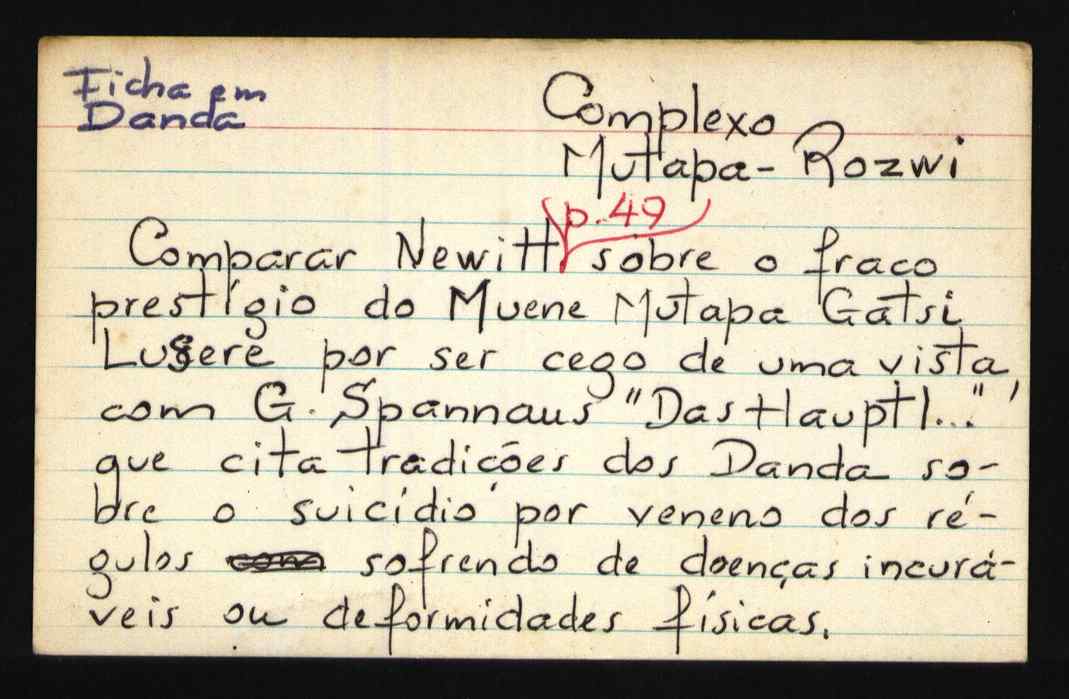 Ficha em
Danda
Complexo
Mutapa-Rozwi
p. 49
Comparar Newitt sobre o fraco
prestígio do Muene Mutapa Gatsi
Lusere por ser cego de uma vista,
com G. Spannaus "Das Hauptl..."
que cita tradições dos Danda so-
bre o suicídio por veneno dos ré-
gulos sofrendo de doenças incurá-
veis ou deformidades físicas.